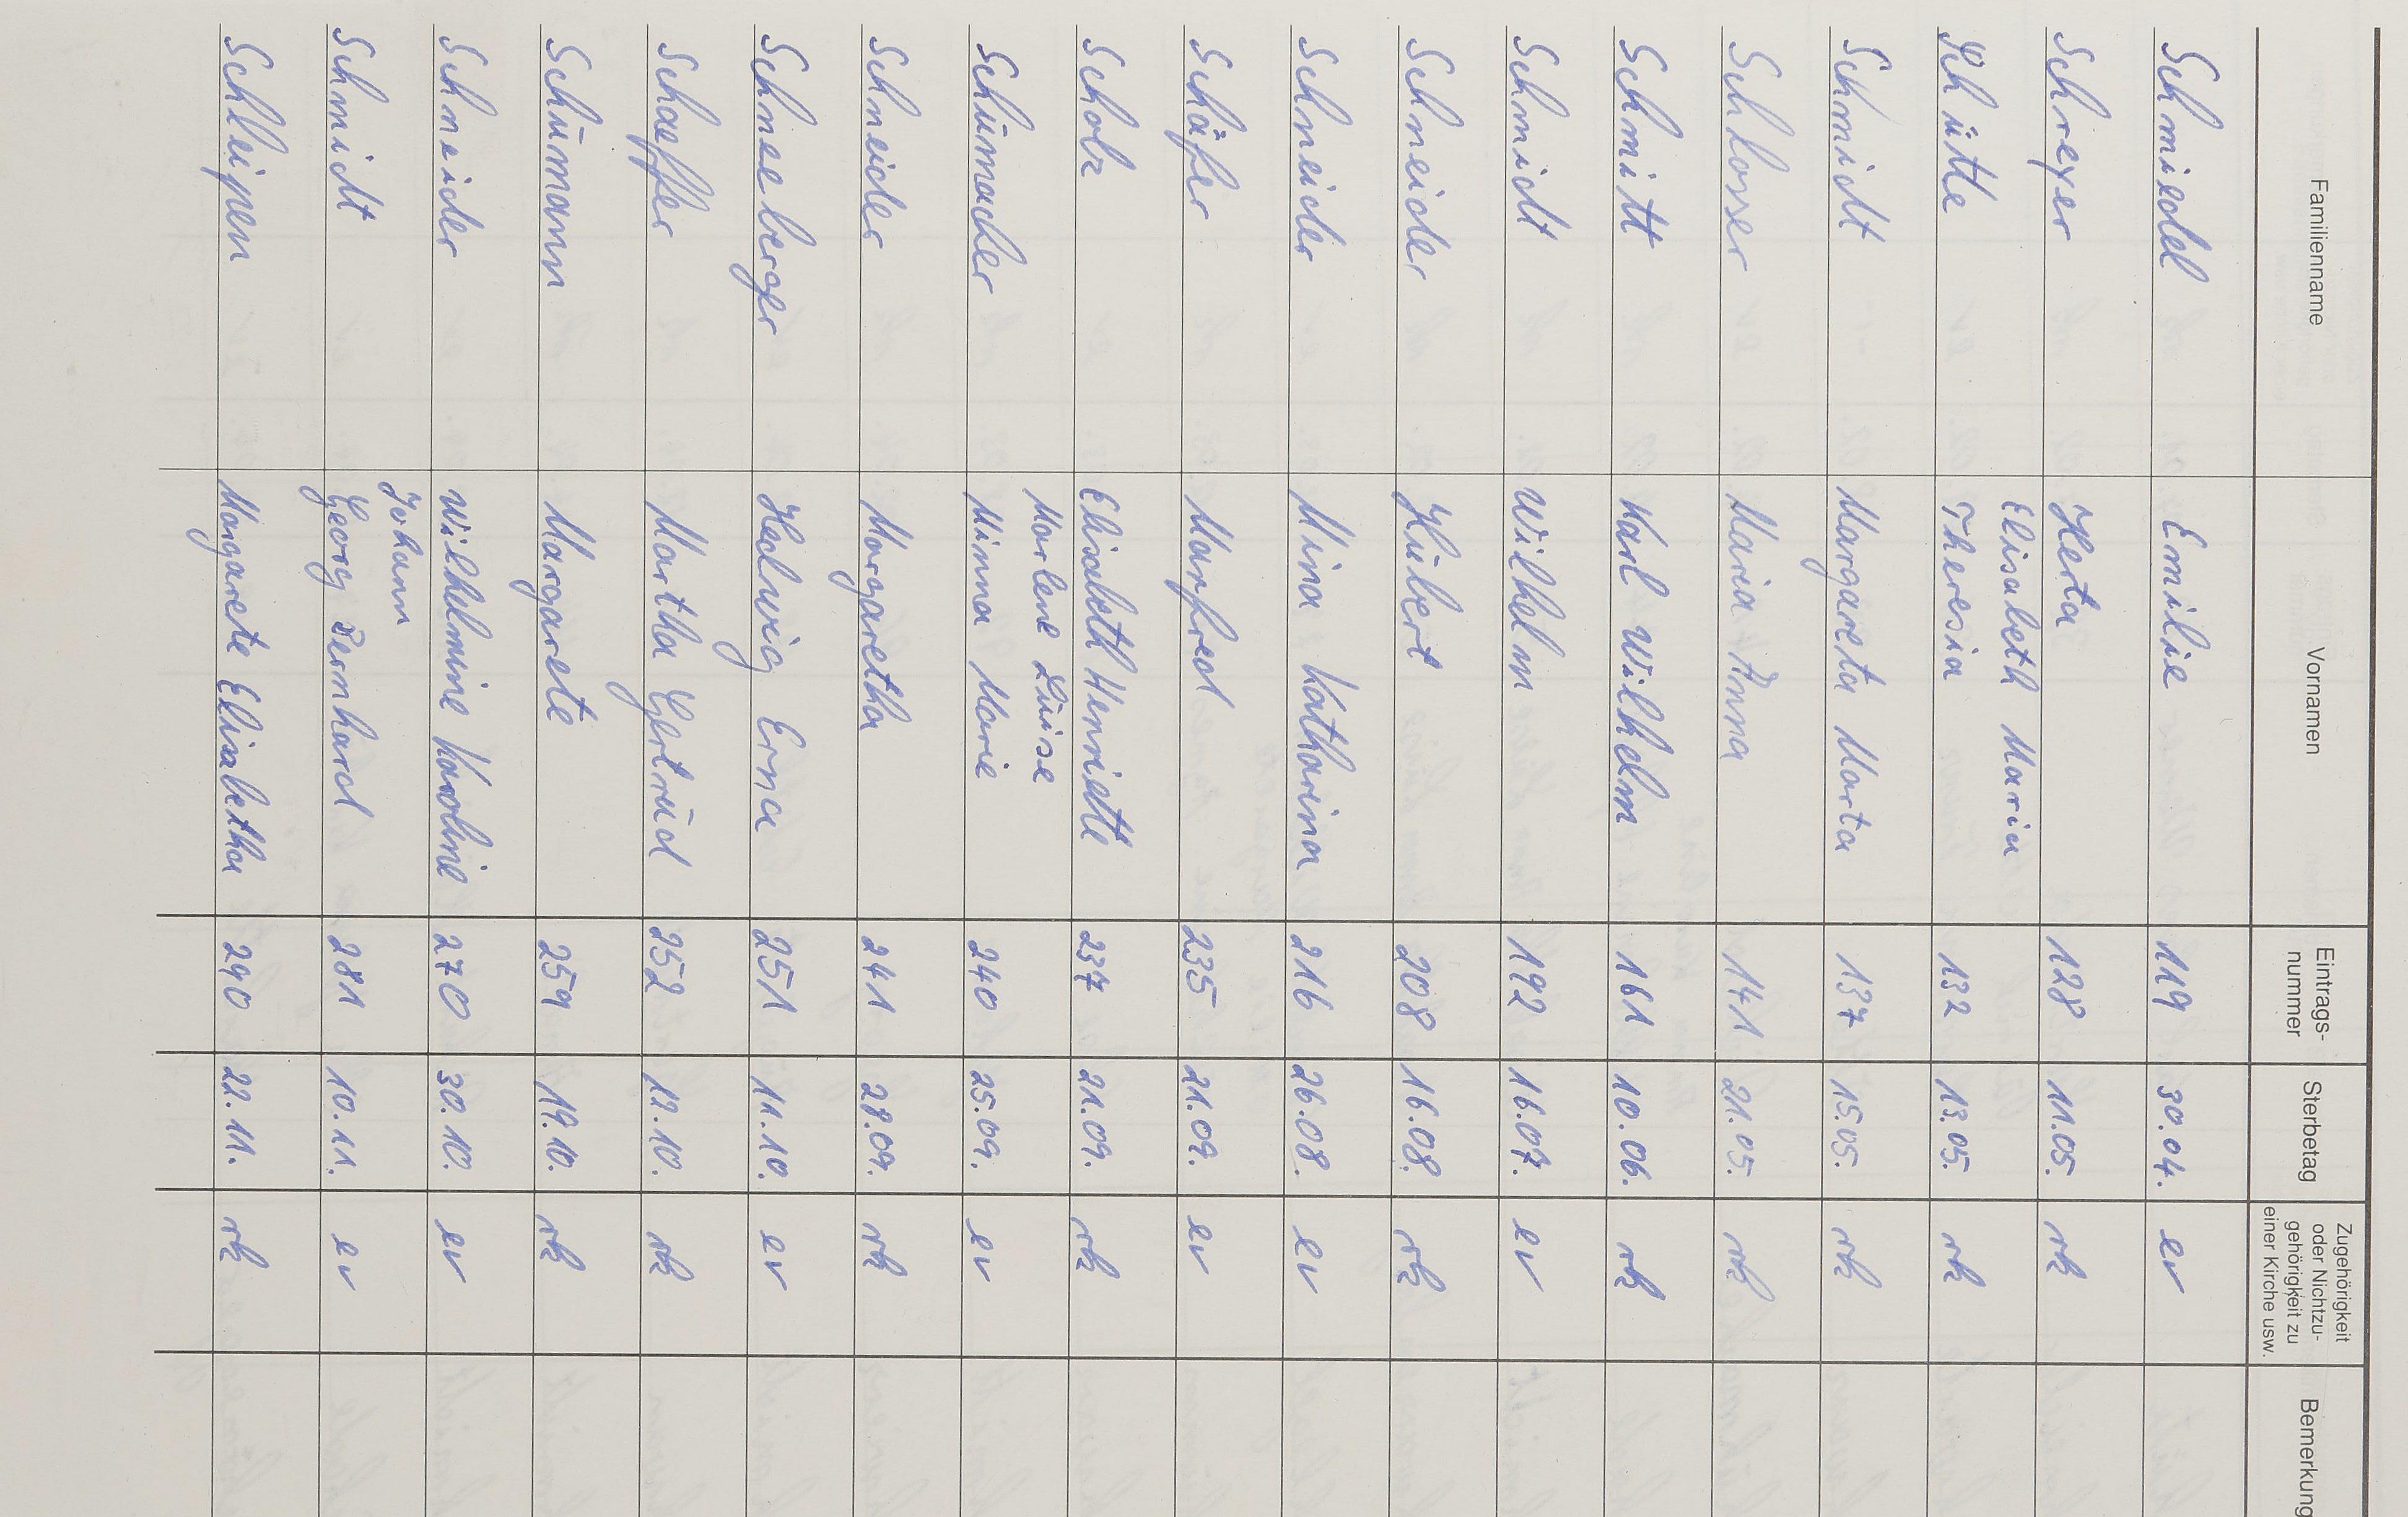 Familienname Vornamen Eintrags-nummer Sterbetag Zugehörigkeit oder Nichtzu-gehörigkeit zu einer Kirche usw. Bemerkung
Schmiedel Emilie 119 30.04. ev
Schreyer Herta 128 11.05. rk
Elisabeth Maria
Schütte Theresia 132 13.05. rk
Schmidt Margareta Marta 137 15.05. rk
Schlosser Maria Anna 141 21.05. rk
Schmitt Karl Wilhelm 161 10.06. rk
Schmidt Wilhelm 192 16.07. ev
Schneider Hubert 208 16.08. rk
Schneider Mina Katharina 216 26.08. ev
Schäfer Manfred 235 21.09. ev
Scholz Elisabeth Henriette 237 21.09. rk
Marlene Luise
Schumacher Minna Marie 240 25.09. ev
Schneider Margaretha 241 28.09. rk
Schneeberger Hedwig Erna 251 11.10. ev
Schaeffer Martha Gertrud 252 12.10. rk
Schumann Margarete 259 19.10. rk
Schneider Wilhelmine Karoline 270 30.10. ev
Johann
Schmidt Georg Bernhard 281 10.11. ev
Schleipen Margarete Elisabetha 290 22.11. rk